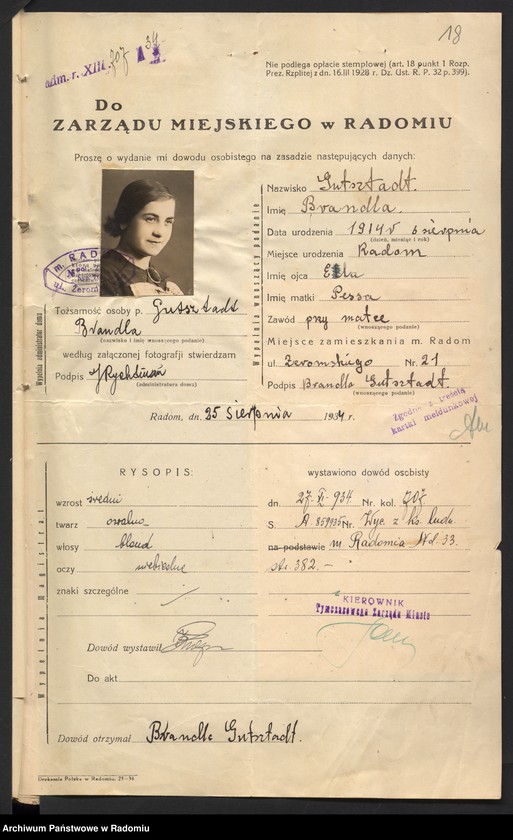 18
adm. r. XIII. 707
Nie podlega opłacie stemplowej (art. 18 punkt 1 Rozp.
Prez. Rzplitej z dn. 16.III 1928 r. Dz. Ust. R. P. 32 p. 399).
Do
ZARZĄDU MIEJSKIEGO w RADOMIU
Proszę o wydanie mi dowodu osobistego na zasadzie następujących danych:
Wypełnia wnoszący podanie
Nazwisko Gutsztadt.
Imię Brandla
Data urodzenia 1914 r 6 sierpnia
(dzień, miesiąc i rok)
Miejsce urodzenia Radom
Imię ojca
Imię matki Pessa
Zawód przy matce
(wnoszącego podanie)
Miejsce zamieszkania m. Radom
ul. Żeromskiego Nr. 21
Podpis Brandla Gutsztadt.
(wnoszącego podanie)
m. RAD
ul. Żerom
Wypełnia administrator domu
Tożsamość osoby p. Gutsztadt
Brandla
(nazwisko i imię wnoszącego podanie)
według załączonej fotografii stwierdzam
Podpis
(administratora domu)
Radom, dn. 25 sierpnia 1934 r.
Zgodne z treścią
kartki meldunkowej
Wypełnia Magistrat
RYSOPIS:
wzrost średni
twarz owalna
włosy blond
oczy niebieskie
znaki szczególne
wystawiono dowód osobisty
dn. 27. 934 Nr. kol. 707
S. A. 859935 Nr. Wyc. z ks. ludn.
na podstawie m. Radomia 33.
str. 382. –
KIEROWNIK
Tymczasowego Zarządu Miasta
Dowód wystawił
Do akt
Dowód otrzymał Brandla Gutsztadt.
Drukarnia Polska w Radomiu. 25-34
Archiwum Państwowe w Radomiu